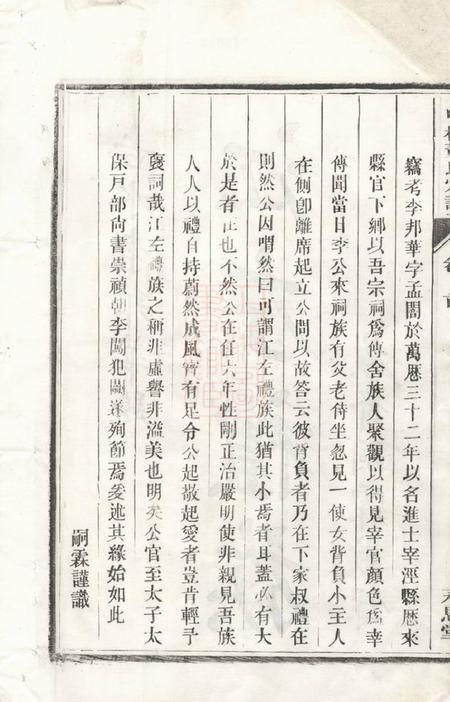 竊考李邦華字孟闇於萬厯三十二年以名進士宰涇縣厯來
縣官下鄉以吾宗祠爲傳舍族人聚觀以得見宰官顏色爲幸
傳聞當日李公來祠族有攵老侍坐忽見一使女背負小主人
在側卽離席起立公問以故答云彼背負者乃在下家叔禮在
則然公因喟然曰可謂江左禮族此猶其小焉者耳蓋必有大
於是者正也不然公在任六年性剛正治嚴明使非親見吾族
人人以禮自持蔚然成風實有足令公起敬起愛者豈肯輕予
襃詞哉江左禮族之稱非虛譽非溢美也明矣公官至太子太
保戸部尙書崇禎朝李闖犯闕遂殉節焉爰述其緣始如此
嗣霖謹識